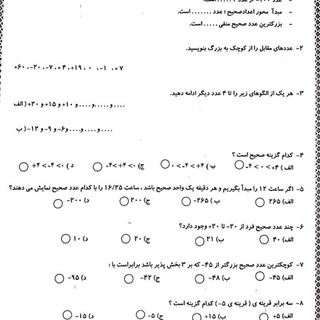 - مبدأ محور اعداد صحیح : عدد ....... است.
- بزرگترین عدد صحیح منفی ..... است.
۲- عددهای مقابل را از کوچک به بزرگ بنویسید.
+۶۰ ، -۲۰ ، -۷ ، +۴ ، +۱۹ ، ۰ ، -۱ ، +۷
۳- هر یک از الگوهای زیر را تا ۴ عدد دیگر ادامه دهید.
الف) +۲۰ و +۱۵ و +۱۰ و ..... و ..... و ..... و .....
ب) -۱۲ و -۹ و -۶ و ..... و ..... و ..... و .....
۴- کدام گزینه صحیح است ؟
۵- اگر ساعت 12 را مبدأ بگیریم و هر دقیقه یک واحد صحیح باشد ، ساعت ۱۶/۲۵ را با کدام عدد صحیح نمایش می دهند؟
الف) ۲۶۵ ب) -۲۶۵ ج) ۲۰۰ د) -۲۰۰
۶- چند عدد صحیح فرد از -۲۰ تا +۲۰ وجود دارد؟
الف) ۴۰ ب) ۲۱ ج) ۲۰ د) ۱۰
۷- کوچکترین عدد صحیح بزرگتر از -۴۵ که بر ۳ بخش پذیر باشد برابراست با :
الف) +۴۵ ب) -۴۸ ج) -۴۲ د) -۹۵
۸- سه برابر قرینه ی ( قرینه ی -۵ ) کدام گزینه است ؟
الف) +۵ ب) -۵ ج) +۱۵ د) -۱۵